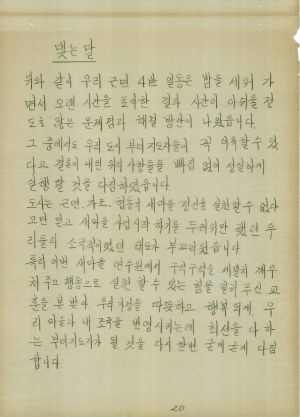 맺는 말
위와 같이 우리 근면 4반 일동은 밤을 새워 가
면서 오랜 시간을 토의한 결과 시간이 아쉬울 정
도로 많은 문제점과 해결 방안이 나왔읍니다.
그 중에서도 우리 도시 부터지도자가 꼭 이룩할 수 있
다고 결론이 내린 위의 사항들을 빠짐 없이 성실하게
실행 할 것을 다짐하였읍니다.
도시는 근면, 자조, 협동의 새마을 정신을 실천할 수 없다
고만 믿고 새마을 사업시작 하기를 두려워만 했던 우
리들의 소극적이었던 태도가 부끄러웠읍니다
특히 이번 새마을 연수원에서 구석구석을 세밀히 깨우
쳐 주고 행동으로 실천 할 수 있는 힘을 길러 주신 교
훈을 본 받아 우리 가정을 따뜻하고 행복 되게, 우
리 마을과 내 조국을 번영시키는데 최선을 다 하
는 부터지도자가 될 것을 다시 한번 굳게 굳게 다짐
합니다.
20